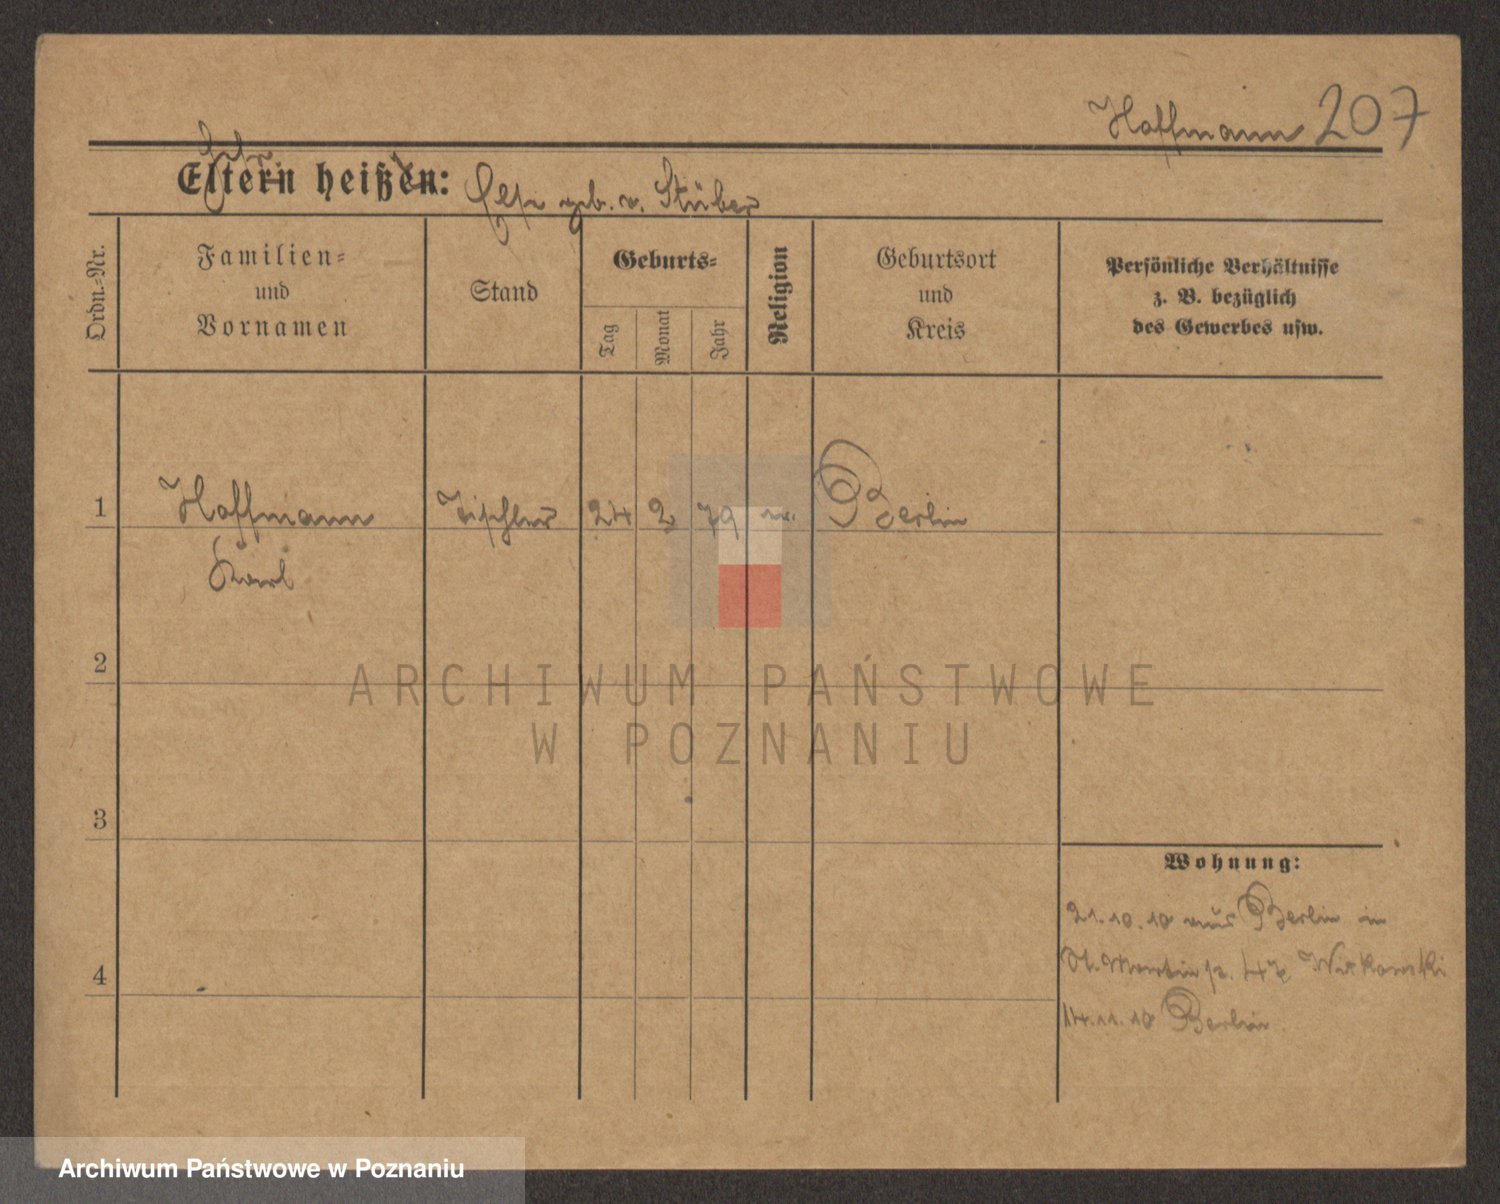 Hoffmann 207
Eltern heißen: geb. v. Stüber
Ordn.-Nr.
Familien-
und
Vornamen
Stand
Geburts-
Tag
Monat
Jahr
Religion
Geburtsort
und
Kreis
Persönliche Verhältnisse
z. B. bezüglich
des Gewerbes usw.
1 Hoffmann Tischler 24 2 79 Berlin
Karl
2
ARCHIWUM PAŃSTWOWE
W POZNANIU
3
Wohnung:
21.10.10 aus Berlin in
St. Martinstr. Witkowski
4
14.11.10 Berlin
Archiwum Państwowe w Poznaniu